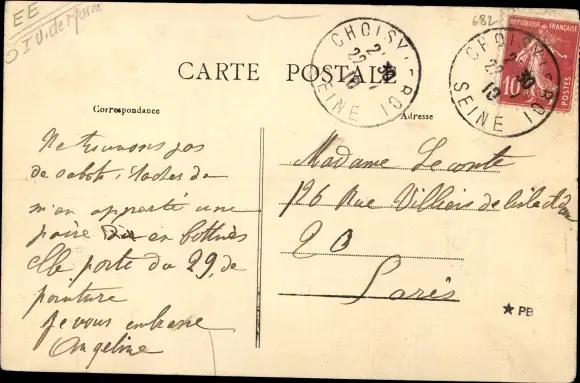 EE
682
CARTE POSTALE
CHOISY-LE-ROI
SEINE
CHOISY-LE-ROI
SEINE
RÉPUBLIQUE FRANÇAISE
10
POSTES
Correspondance
Adresse
Ne trouvons pas
de sabots, tachez de
m'en apporté une
paire en bottines
elle porte du 29, de
pointure
Je vous embrasse
Angeline
Madame Leconte
126 Rue Villiers de l'isle adam
20
Paris
★ PB